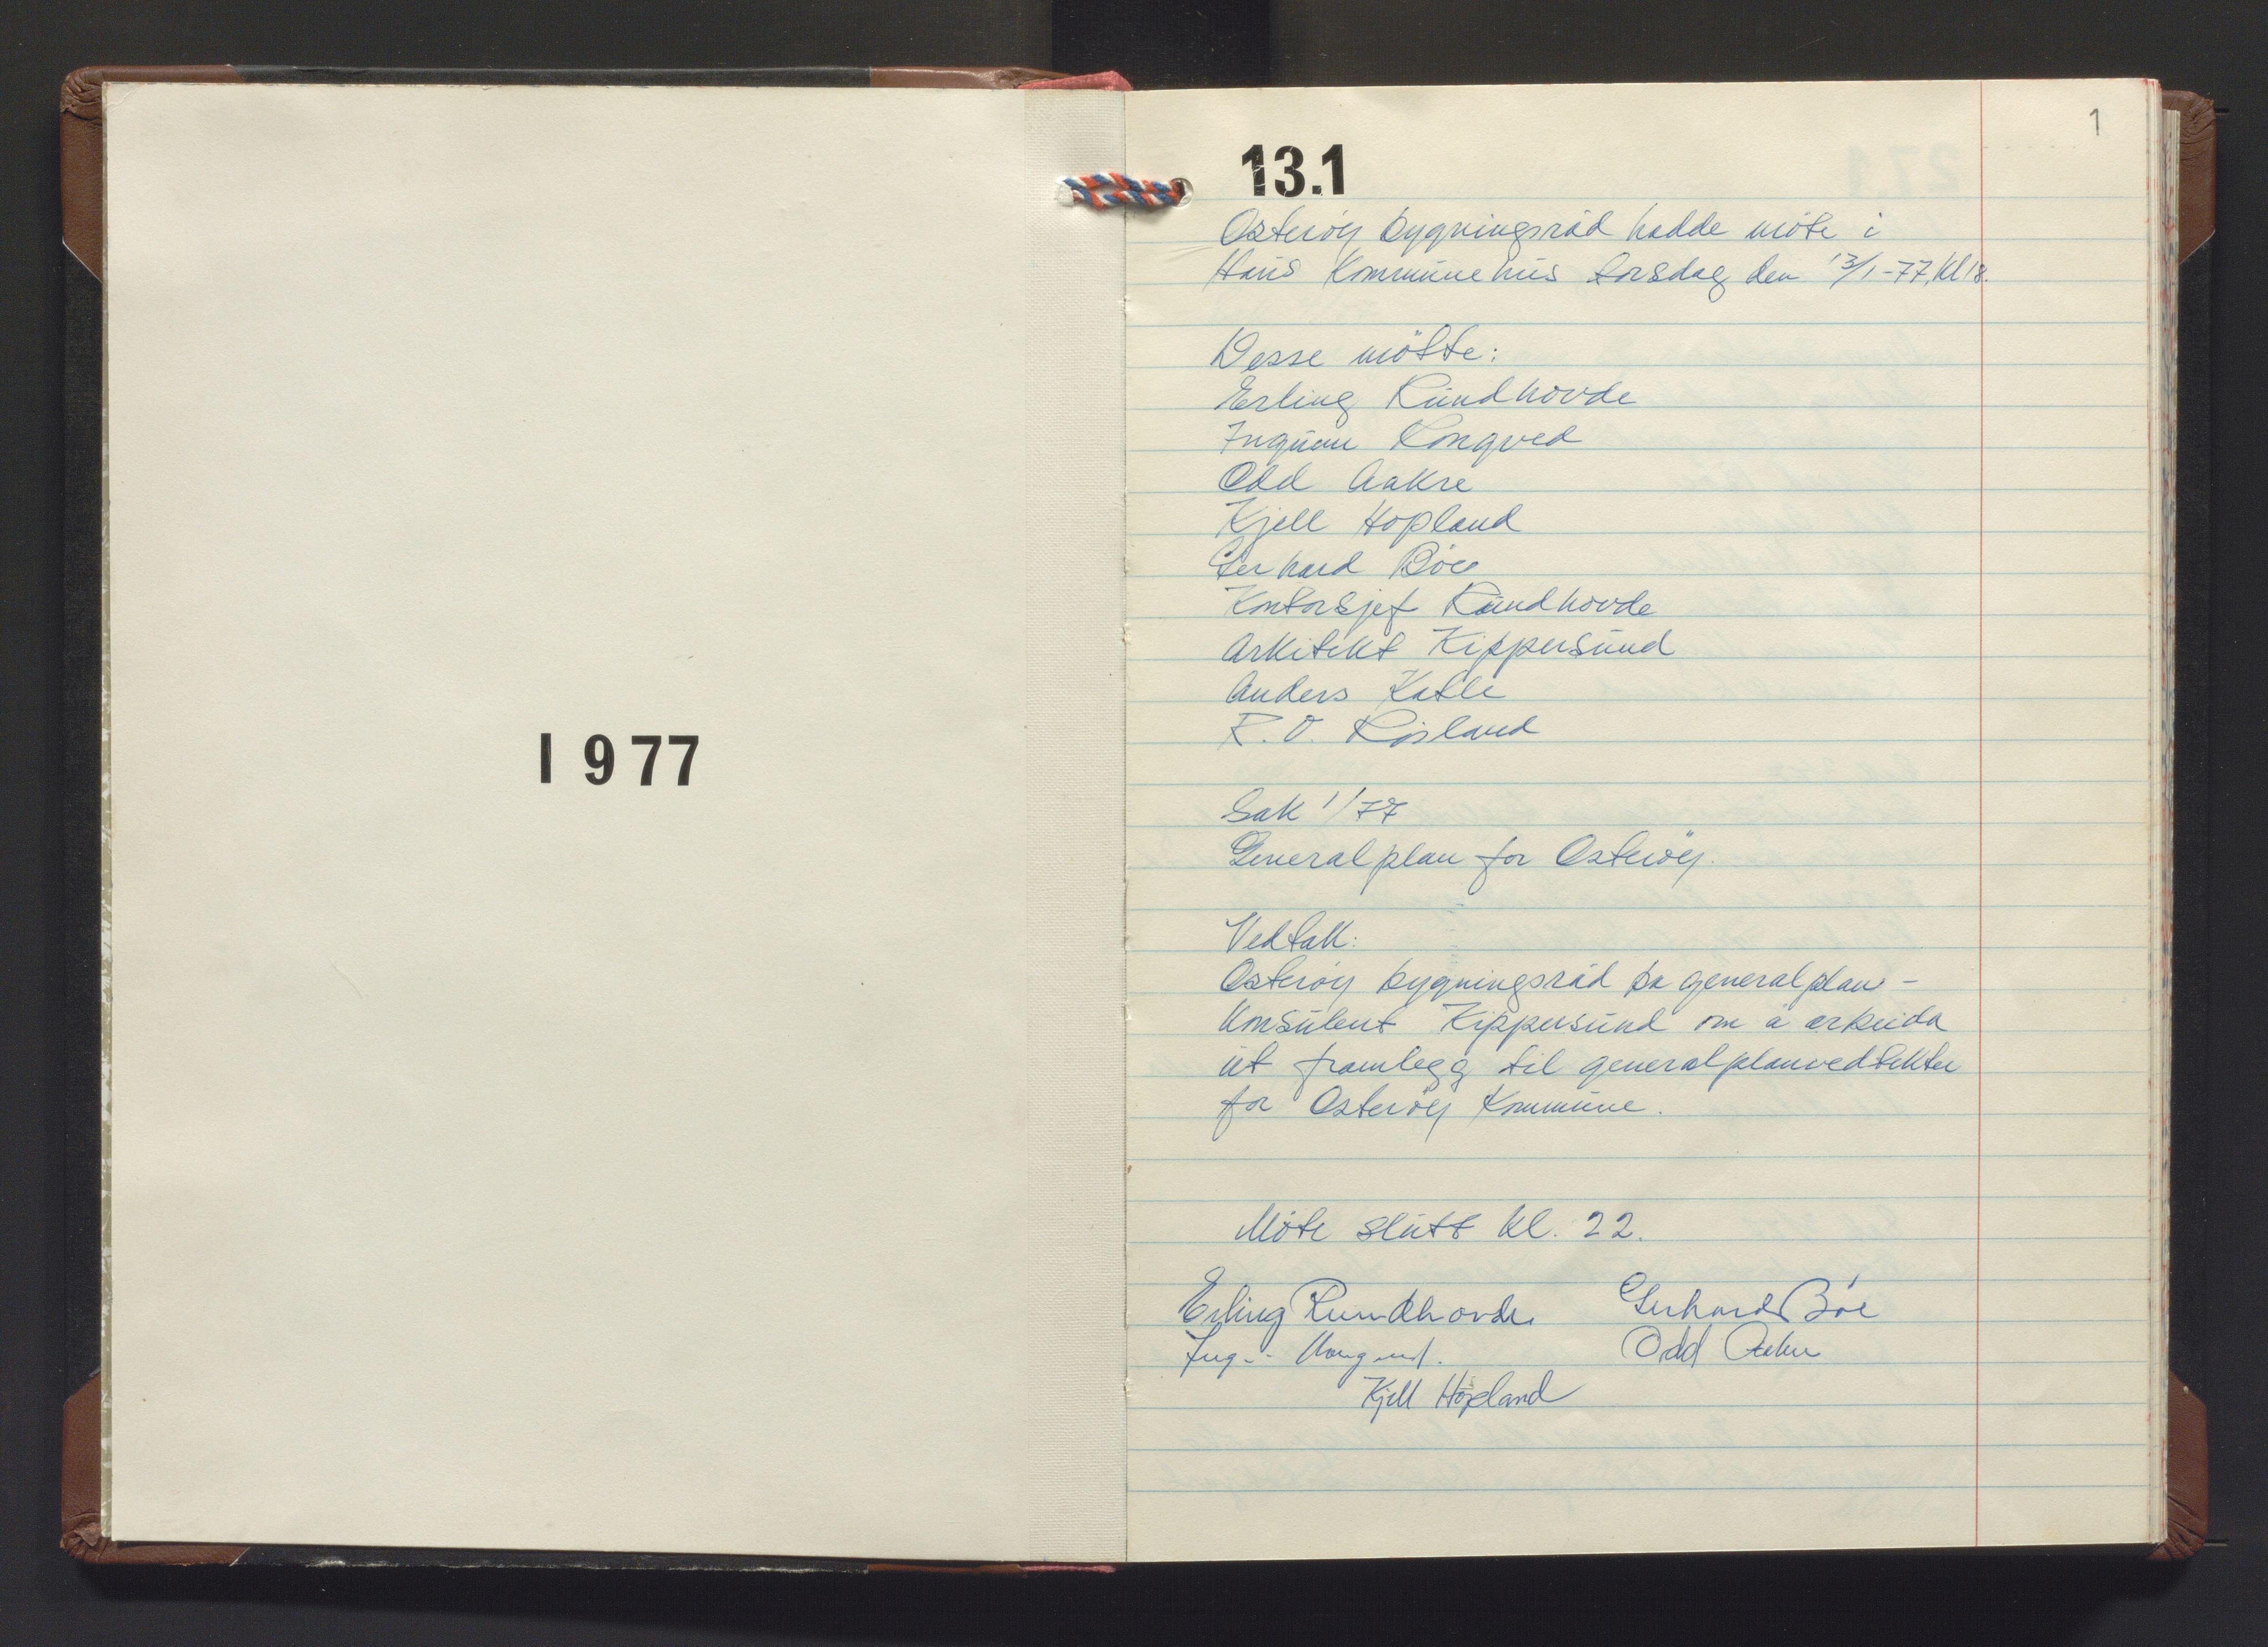 1977
1
13.1
Osterøy bygningsråd hadde møte i
Haus Kommunehus torsdag den 13/1-77, kl 18.
Desse møtte:
Erling Rundhovde
Ingvar Kongved
Odd Aakre
Kjell Hopland
Gerhard Bøe
Kontorsjef Rundhovde
Arkitekt Kippersund
Anders Katle
R. O. Røsland
Sak 1/77
Generalplan for Osterøy.
Vedtak:
Osterøy bygningsråd ba generalplan-
konsulent Kippersund om å arbeida
ut framlegg til generalplanvedtekter
for Osterøy Kommune.
Møte slutt kl. 22.
Erling Rundhovde Gerhard Bøe
Odd Aakre
Kjell Hopland